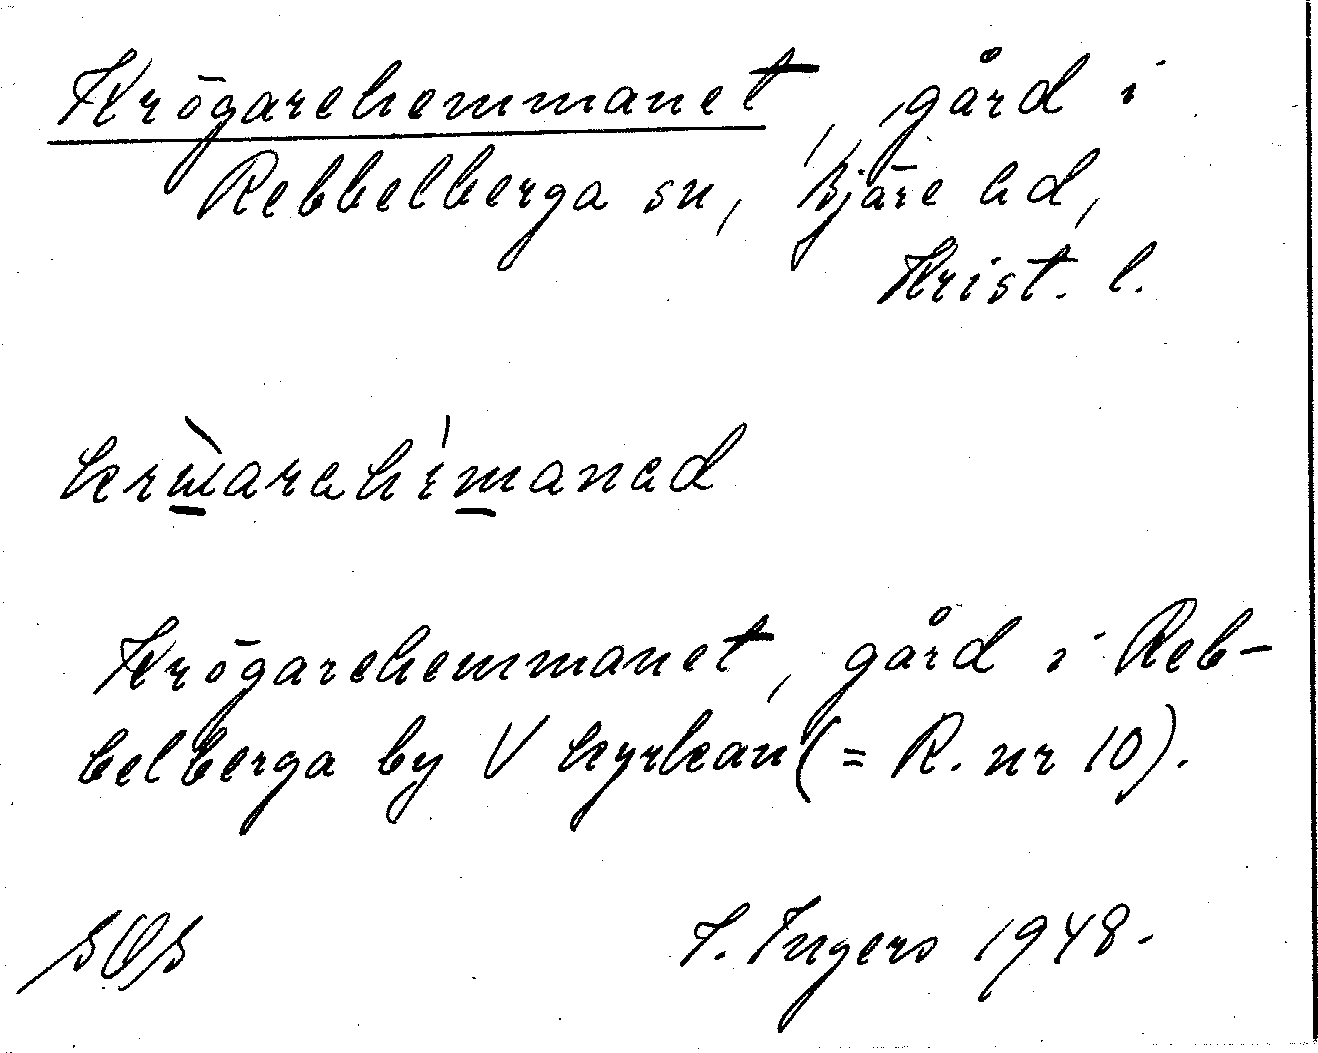 Krögarehemmanet, gård i
Rebbelberga sn, Bjäre hd,
Krist. l.
Krögarehemmanet, gård i Reb-
belberga by V kyrkan (= R. nr 10).
SOS
I. Ingers 1948.